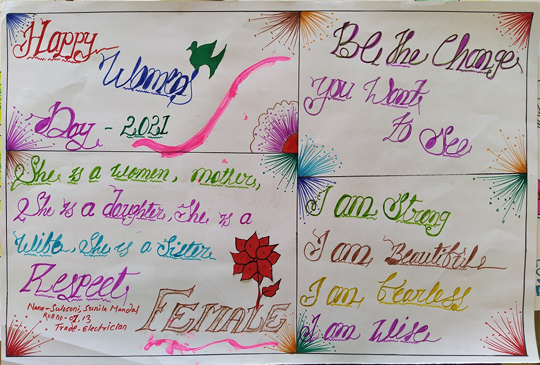 Happy
Women
Day - 2021
Be the Change
You Want
to See
She is a women, mother,
She is a daughter, She is a
Wife, She is a Sister
Respect
FEMALE
Name - Sulochni, Sunita Mandal
Roll no - 07, 13
Trade - Electrician
I am Strong
I am Beautiful
I am fearless
I am Wise